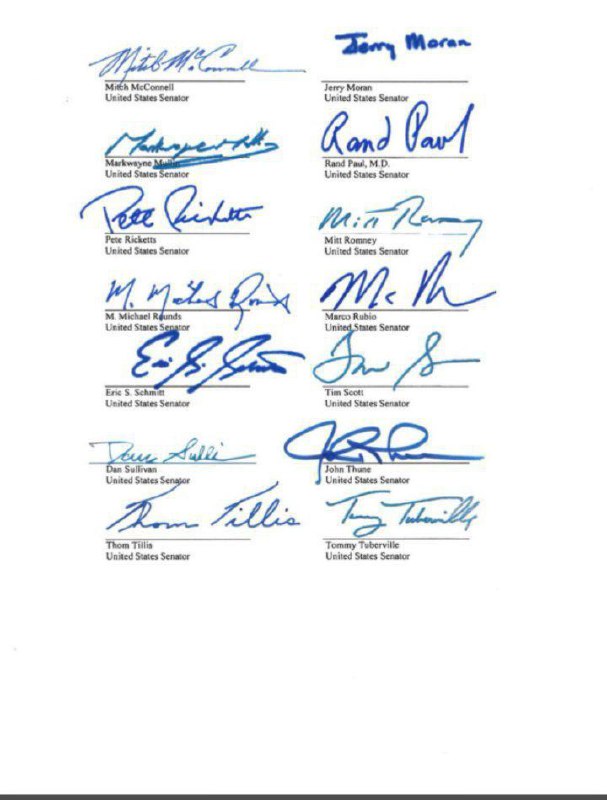 Mitch McConnell
Mitch McConnell
United States Senator
Jerry Moran
Jerry Moran
United States Senator
Markwayne Mullin
United States Senator
Rand Paul
Rand Paul, M.D.
United States Senator
Pete Ricketts
Pete Ricketts
United States Senator
Mitt Romney
Mitt Romney
United States Senator
M. Michael Rounds
M. Michael Rounds
United States Senator
Marco Rubio
United States Senator
Eric S. Schmitt
Eric S. Schmitt
United States Senator
Tim Scott
United States Senator
Dan Sullivan
Dan Sullivan
United States Senator
John Thune
United States Senator
Thom Tillis
Thom Tillis
United States Senator
Tommy Tuberville
Tommy Tuberville
United States Senator